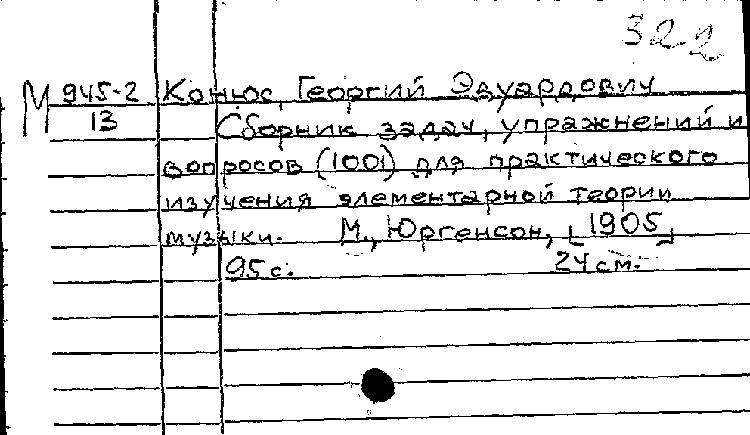 322
М 945-2 Конюс, Георгий Эдуардович
13 Сборник задач, упражнений и
вопросов (1001) для практического
изучения элементарной теории
музыки. М., Юргенсон, [1905]
95 с. 24 см.